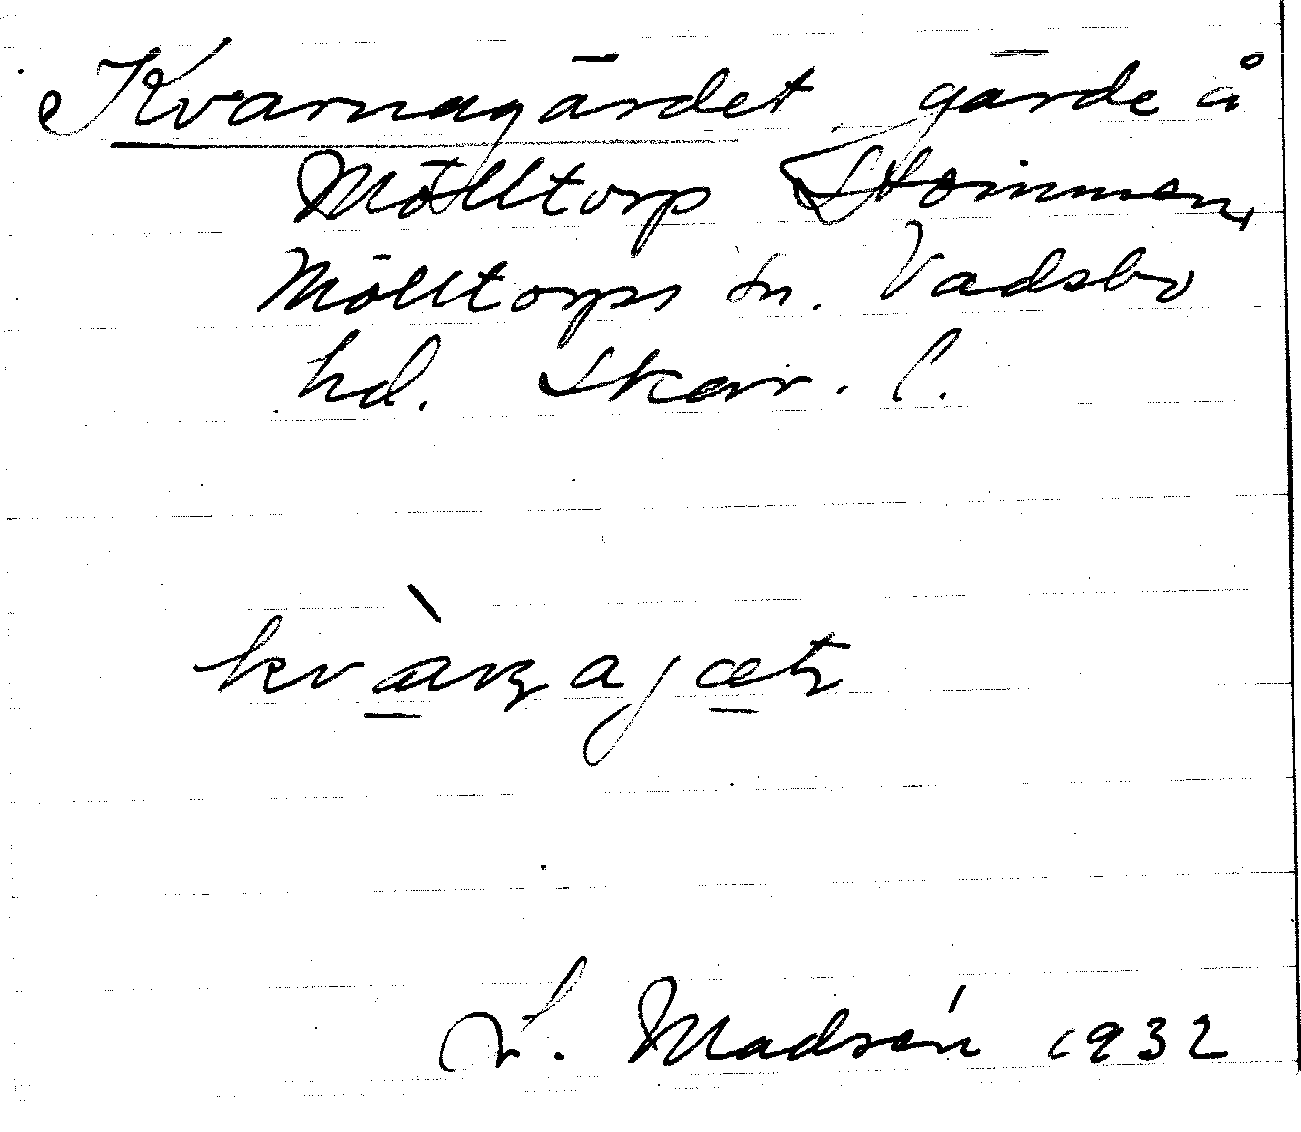 Kvarnagärdet gärde å
Mölltorp Stommen,
Mölltorps sn. Vadsbo
hd. Skar. l.
kvàrnagæt
Madsén 1932